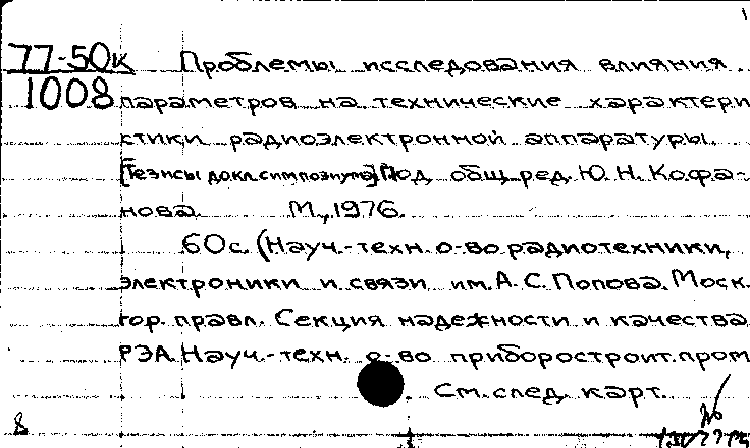 1
77-50к Проблемы исследования влияния
1008 параметров на технические характери
стики радиоэлектронной аппаратуры.
[Тезисы докл. симпозиума] Под общ. ред. Ю. Н. Кофа-
нова. М., 1976.
60с. (Науч.-техн. о-во радиотехники,
электроники и связи им. А. С. Попова. Моск.
гор. правл. Секция надежности и качества
РЭА Науч.-техн. о-во приборостроит. пром
См. след. карт.
8